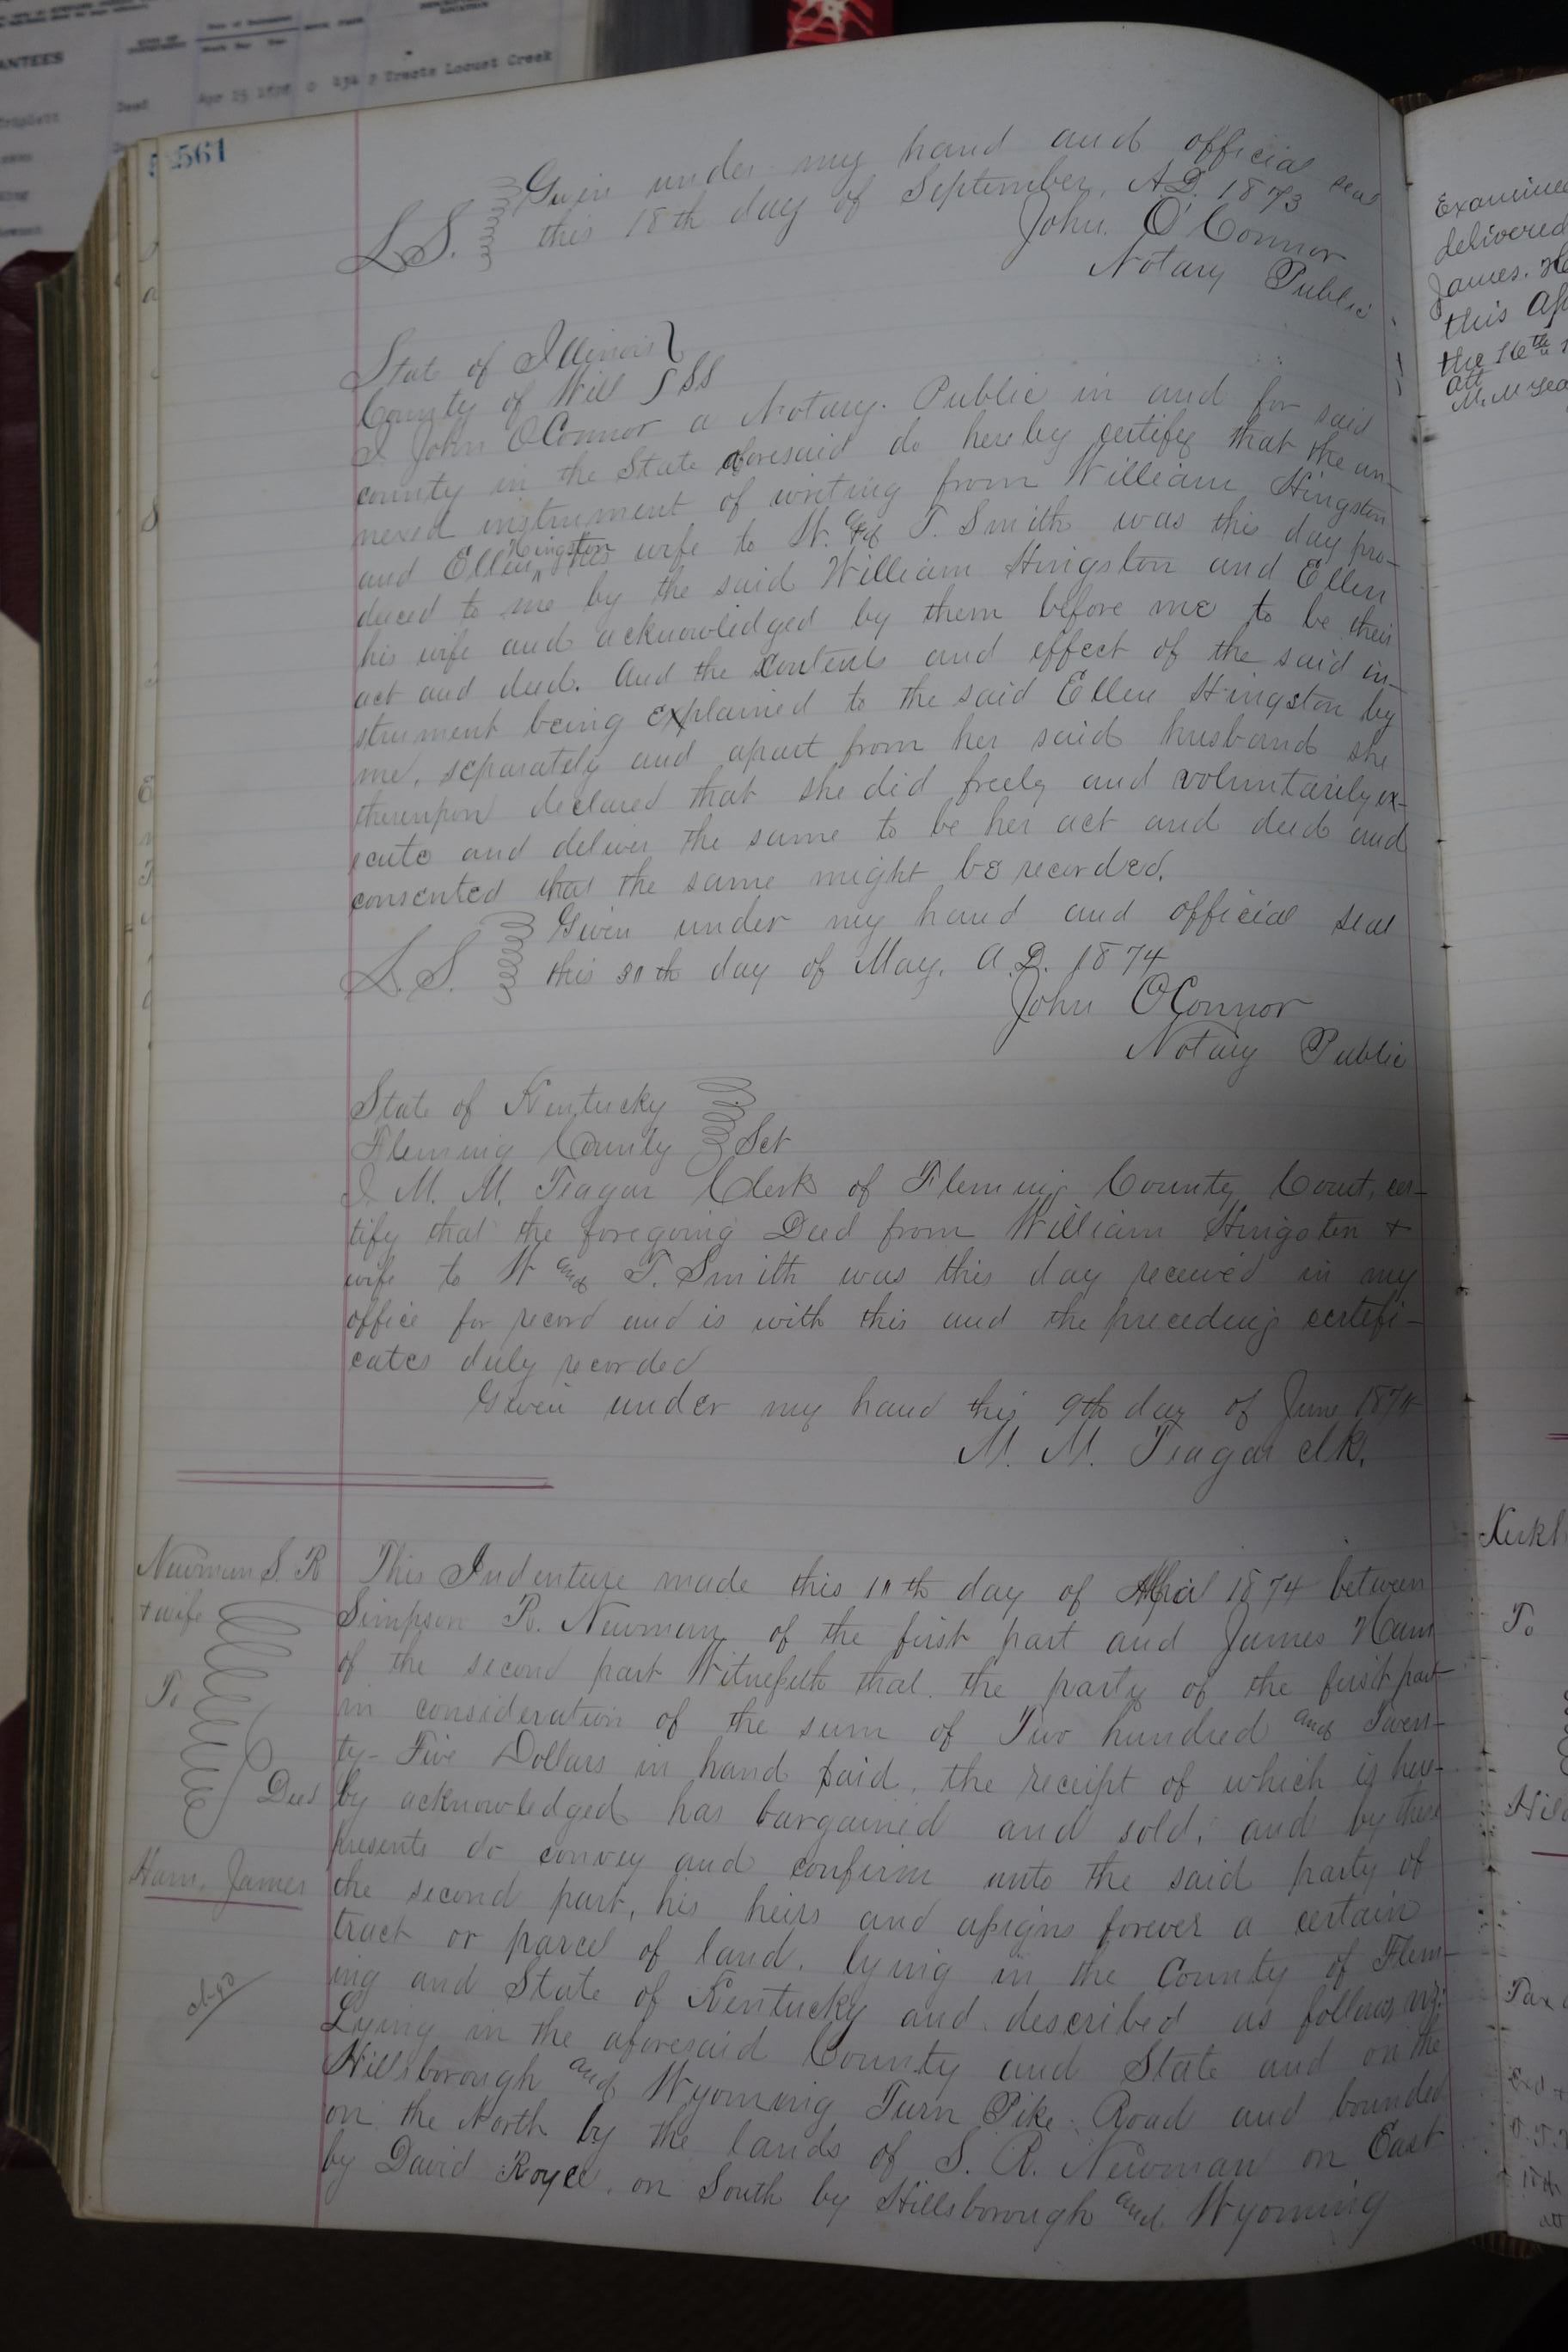 ANTEES
Deed Apr 25 1898 O 434 2 Tracts Locust Creek
561
Given under my hand and official seal
L.S. this 18th day of September, A.D. 1873
John. O'Connor
Notary Public
State of Illinois
County of Will SS
I John OConnor a Notary. Public in and for said
county in the State aforesaid do hereby certify that the an-
nexed instrument of writing from William Hingston
and Ellen Hingston his wife to W. and T. Smith was this day pro-
duced to me by the said William Hingston and Ellen
his wife and acknowledged by them before me to be their
act and deed. And the contents and effect of the said in-
strument being explained to the said Ellen Hingston by
me, separately and apart from her said husband she
thereupon declared that she did freely and voluntarily ex-
ecute and deliver the same to be her act and deed and
consented that the same might be recorded.
Given under my hand and official seal
L.S. this day of May. A.D. 1874
John OConnor
Notary Public
State of Kentucky
Fleming County Sct
I M. M. Teagar Clerk of Fleming County Court, cer-
tify that the foregoing Deed from William Hingston +
wife to W and T. Smith was this day received in my
office for record and is with this and the preceding certifi-
cates duly recorded
Given under my hand this 9th day of June 1874
M. M. Teagar clk.
Newman S. R
+ wife
To
Deed
Ham, James
This Indenture made this day of April 1874 between
Simpson R. Newman of the first part and James Ham
of the second part Witnesseth that. the party of the first part
in consideration of the sum of Two hundred and Twen-
ty-Five Dollars in hand paid, the receipt of which is here-
by acknowledged has bargained and sold, and by these
presents do convey and confirm unto the said party of
the second part, his heirs and assigns forever a certain
tract or parcel of land. lying in the County of Flem-
ing and State of Kentucky and described as follows, viz:
Lying in the aforesaid County and State and on the
Hillsborough and Wyoming Turn Pike Road and bounded
on the North by the lands of S. R. Newman on East
by David Royce, on South by Hillsborough and Wyoming
Examined
delivered
James. H
this Ap
the 16th
att
To